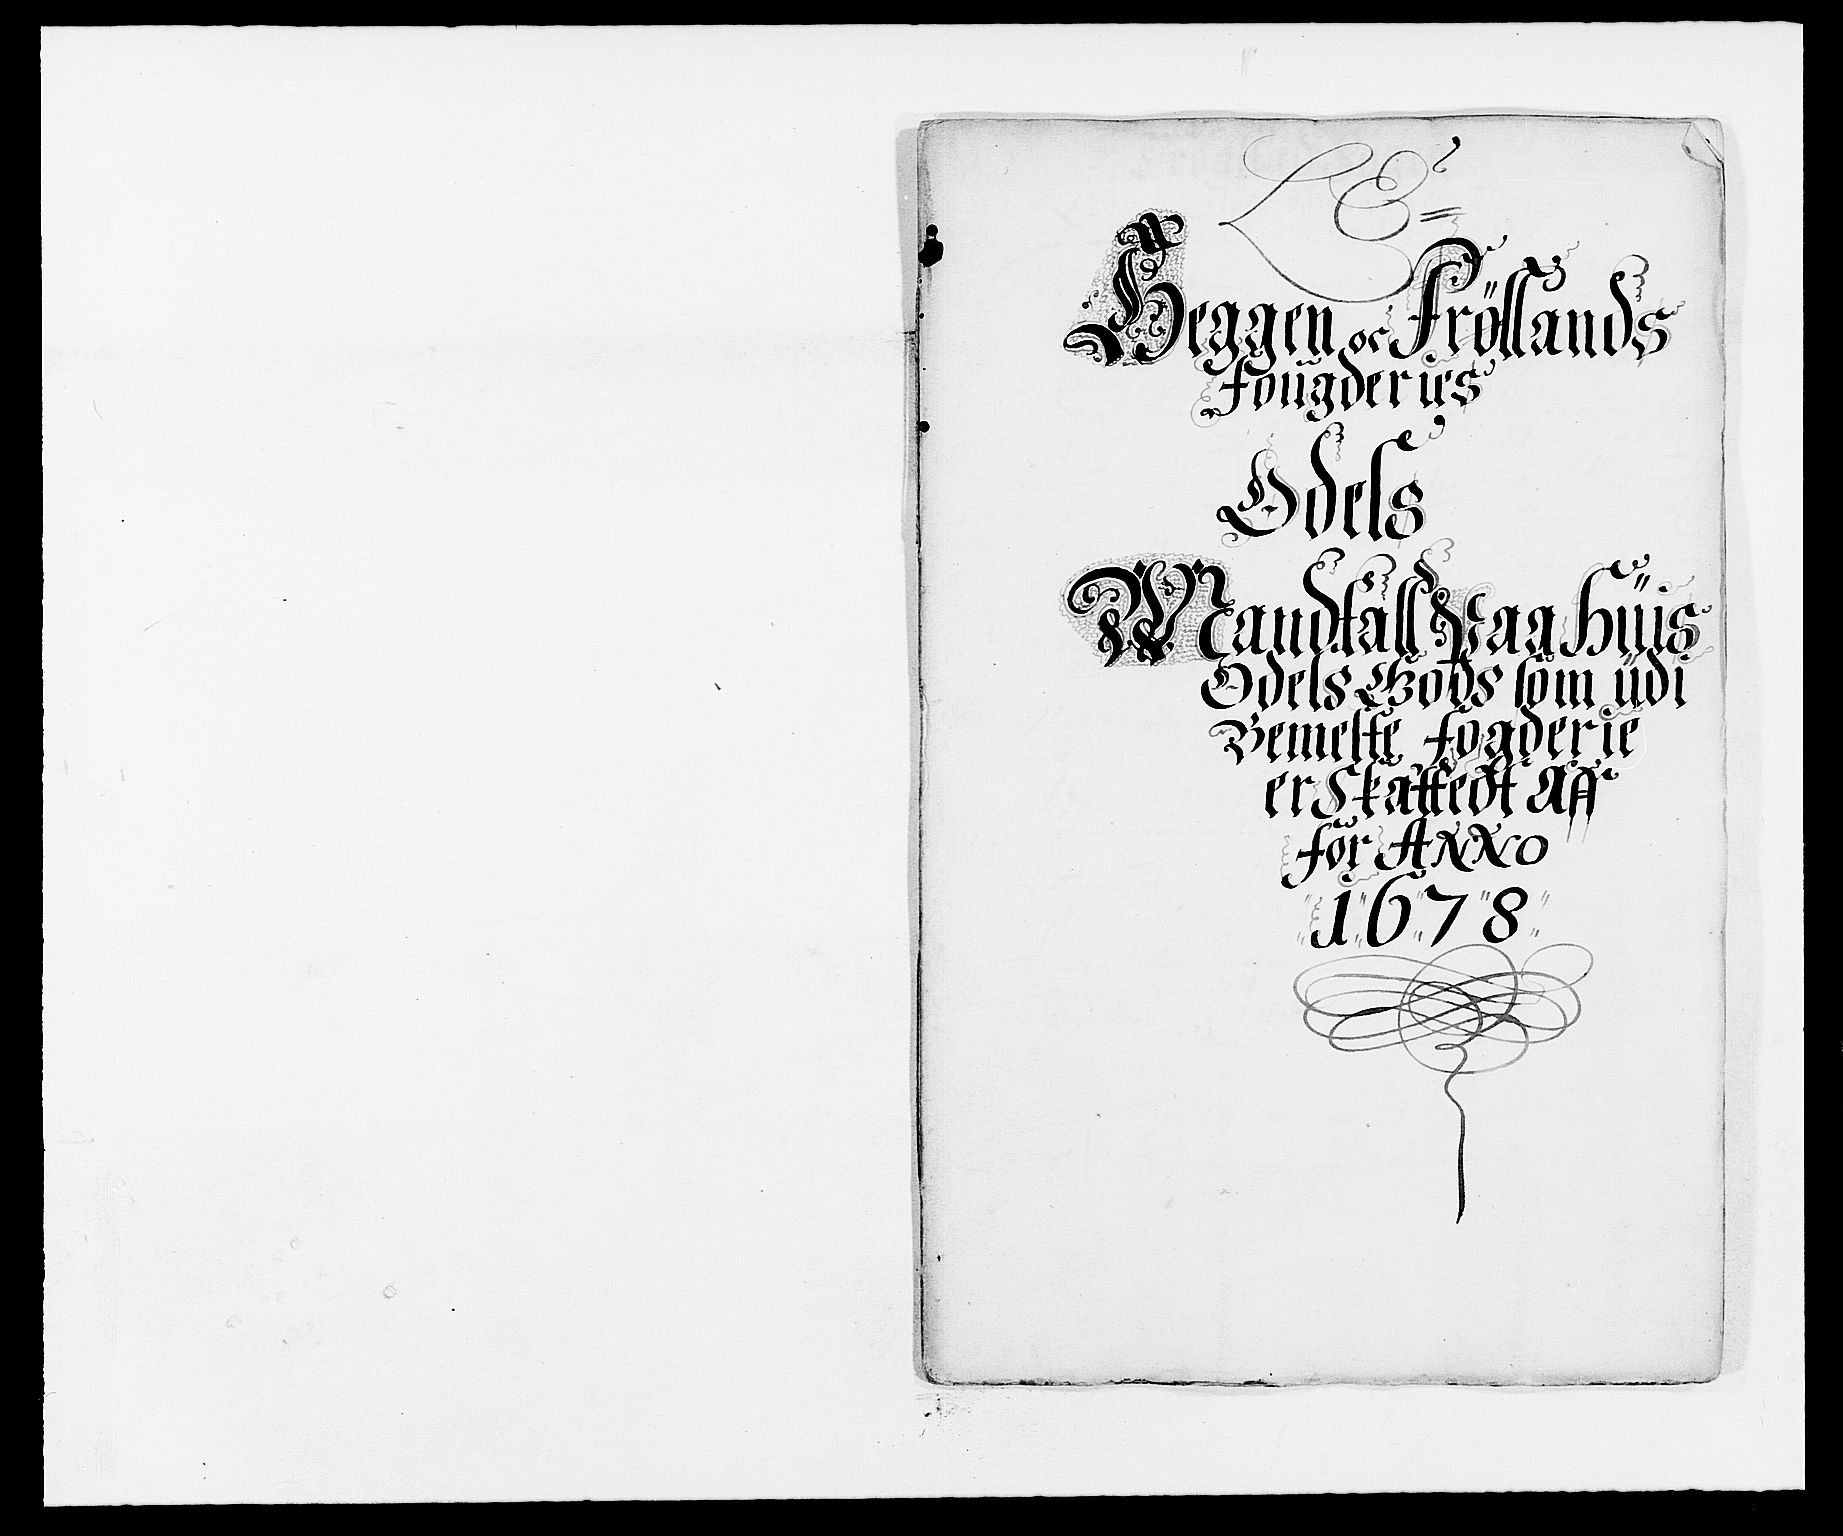 LE=
Heggen oc Fröllands
foügderies
Odels
Mandtall Paa hüis
Odels Gods som üdi
Bemelte fogderie
er Skattedt Aff
for Anno
1678